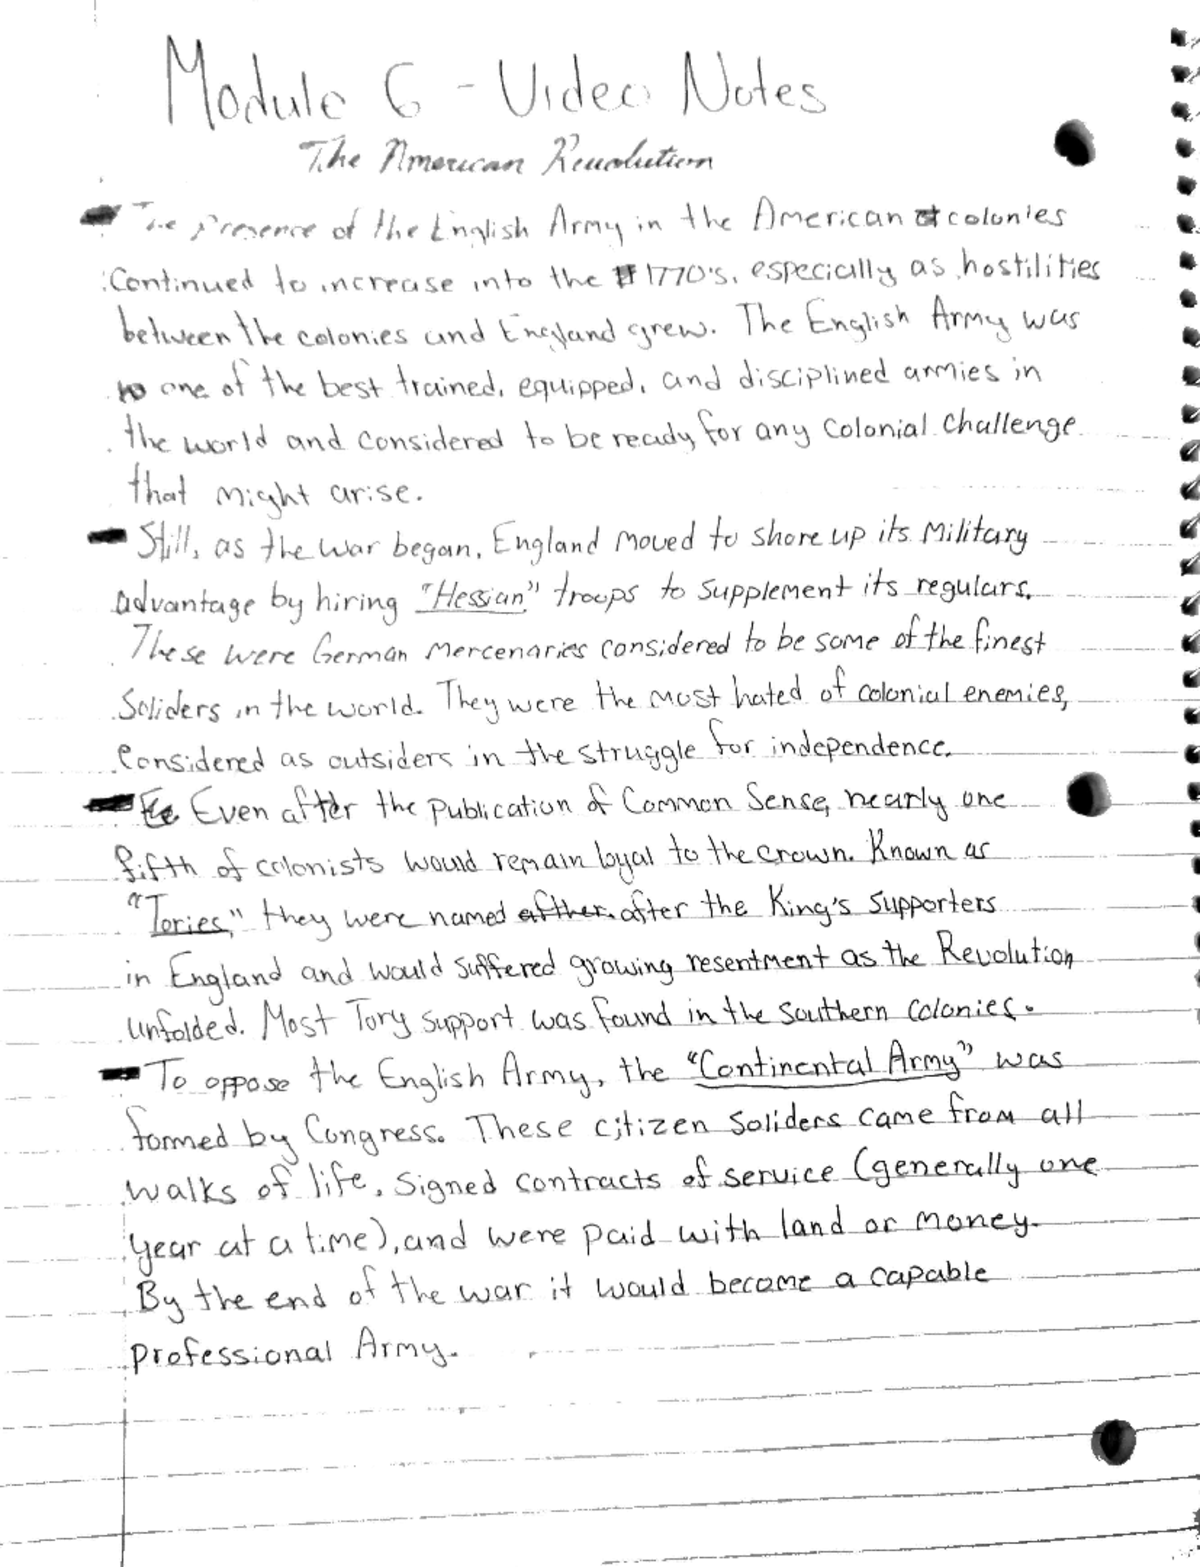 Module 6 - Video Notes
The American Revolution
- The presence of the English Army in the American colonies
continued to increase into the 1770's, especially as hostilities
between the colonies and England grew. The English Army was
one of the best trained, equipped, and disciplined armies in
the world and considered to be ready for any colonial challenge
that might arise.
- Still, as the war began, England moved to shore up its military
advantage by hiring "Hessian" troops to supplement its regulars.
These were German mercenaries considered to be some of the finest
Soliders in the world. They were the most hated of colonial enemies,
considered as outsiders in the struggle for independence.
- Even after the publication of Common Sense, nearly one
fifth of colonists would remain loyal to the crown. Known as
"Tories," they were named after the King's supporters
in England and would suffered growing resentment as the Revolution
unfolded. Most Tory support was found in the southern colonies.
- To oppose the English Army, the "Continental Army" was
formed by Congress. These citizen soliders came from all
walks of life, signed contracts of service (generally one
year at a time), and were paid with land or money.
By the end of the war it would become a capable
professional Army.